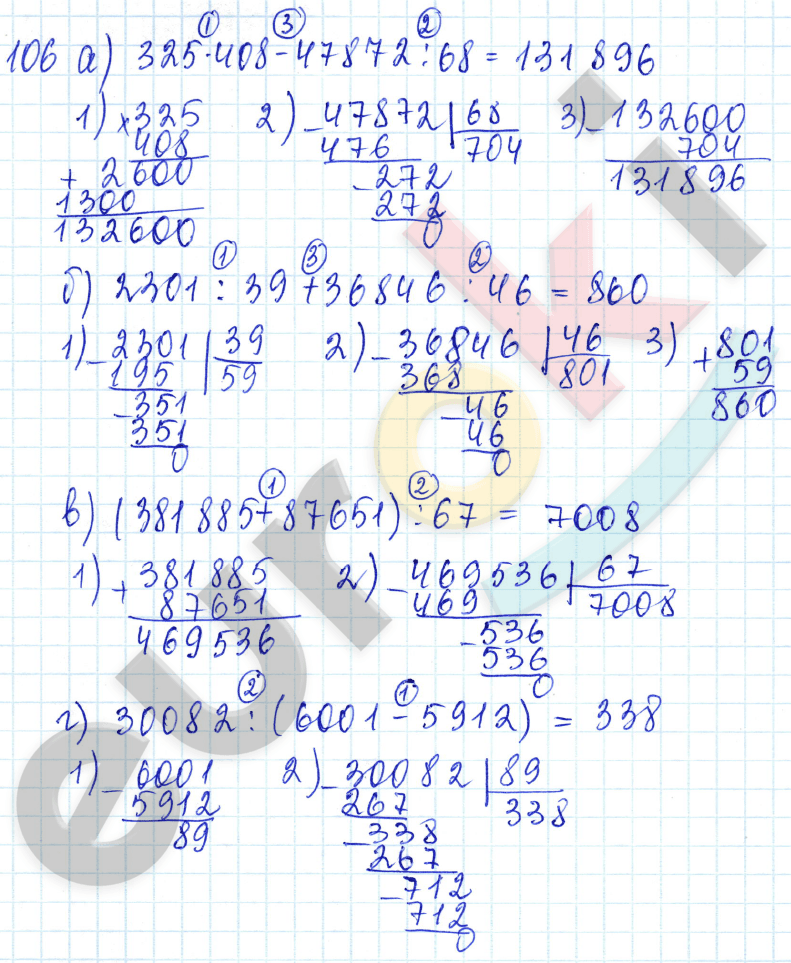 ① ③ ②
106 а) 325·408-47872:68=131896
1) ×325 2) -47872 | 68 3) -132600
408 476 704 704
+ 2600 -272 131896
1300 272
132600 0
① ③ ②
б) 2301:39+36846:46=860
1) -2301 | 39 2) -36846 | 46 3) +801
195 59 368 801 59
-351 -46 860
351 46
0 0
① ②
в) (381885+87651):67=7008
1) +381885 2) -469536 | 67
87651 469 7008
469536 -536
536
0
② ①
г) 30082:(6001-5912)=338
1) -6001 2) -30082 | 89
5912 267 338
89 -338
267
-712
712
0
euroki